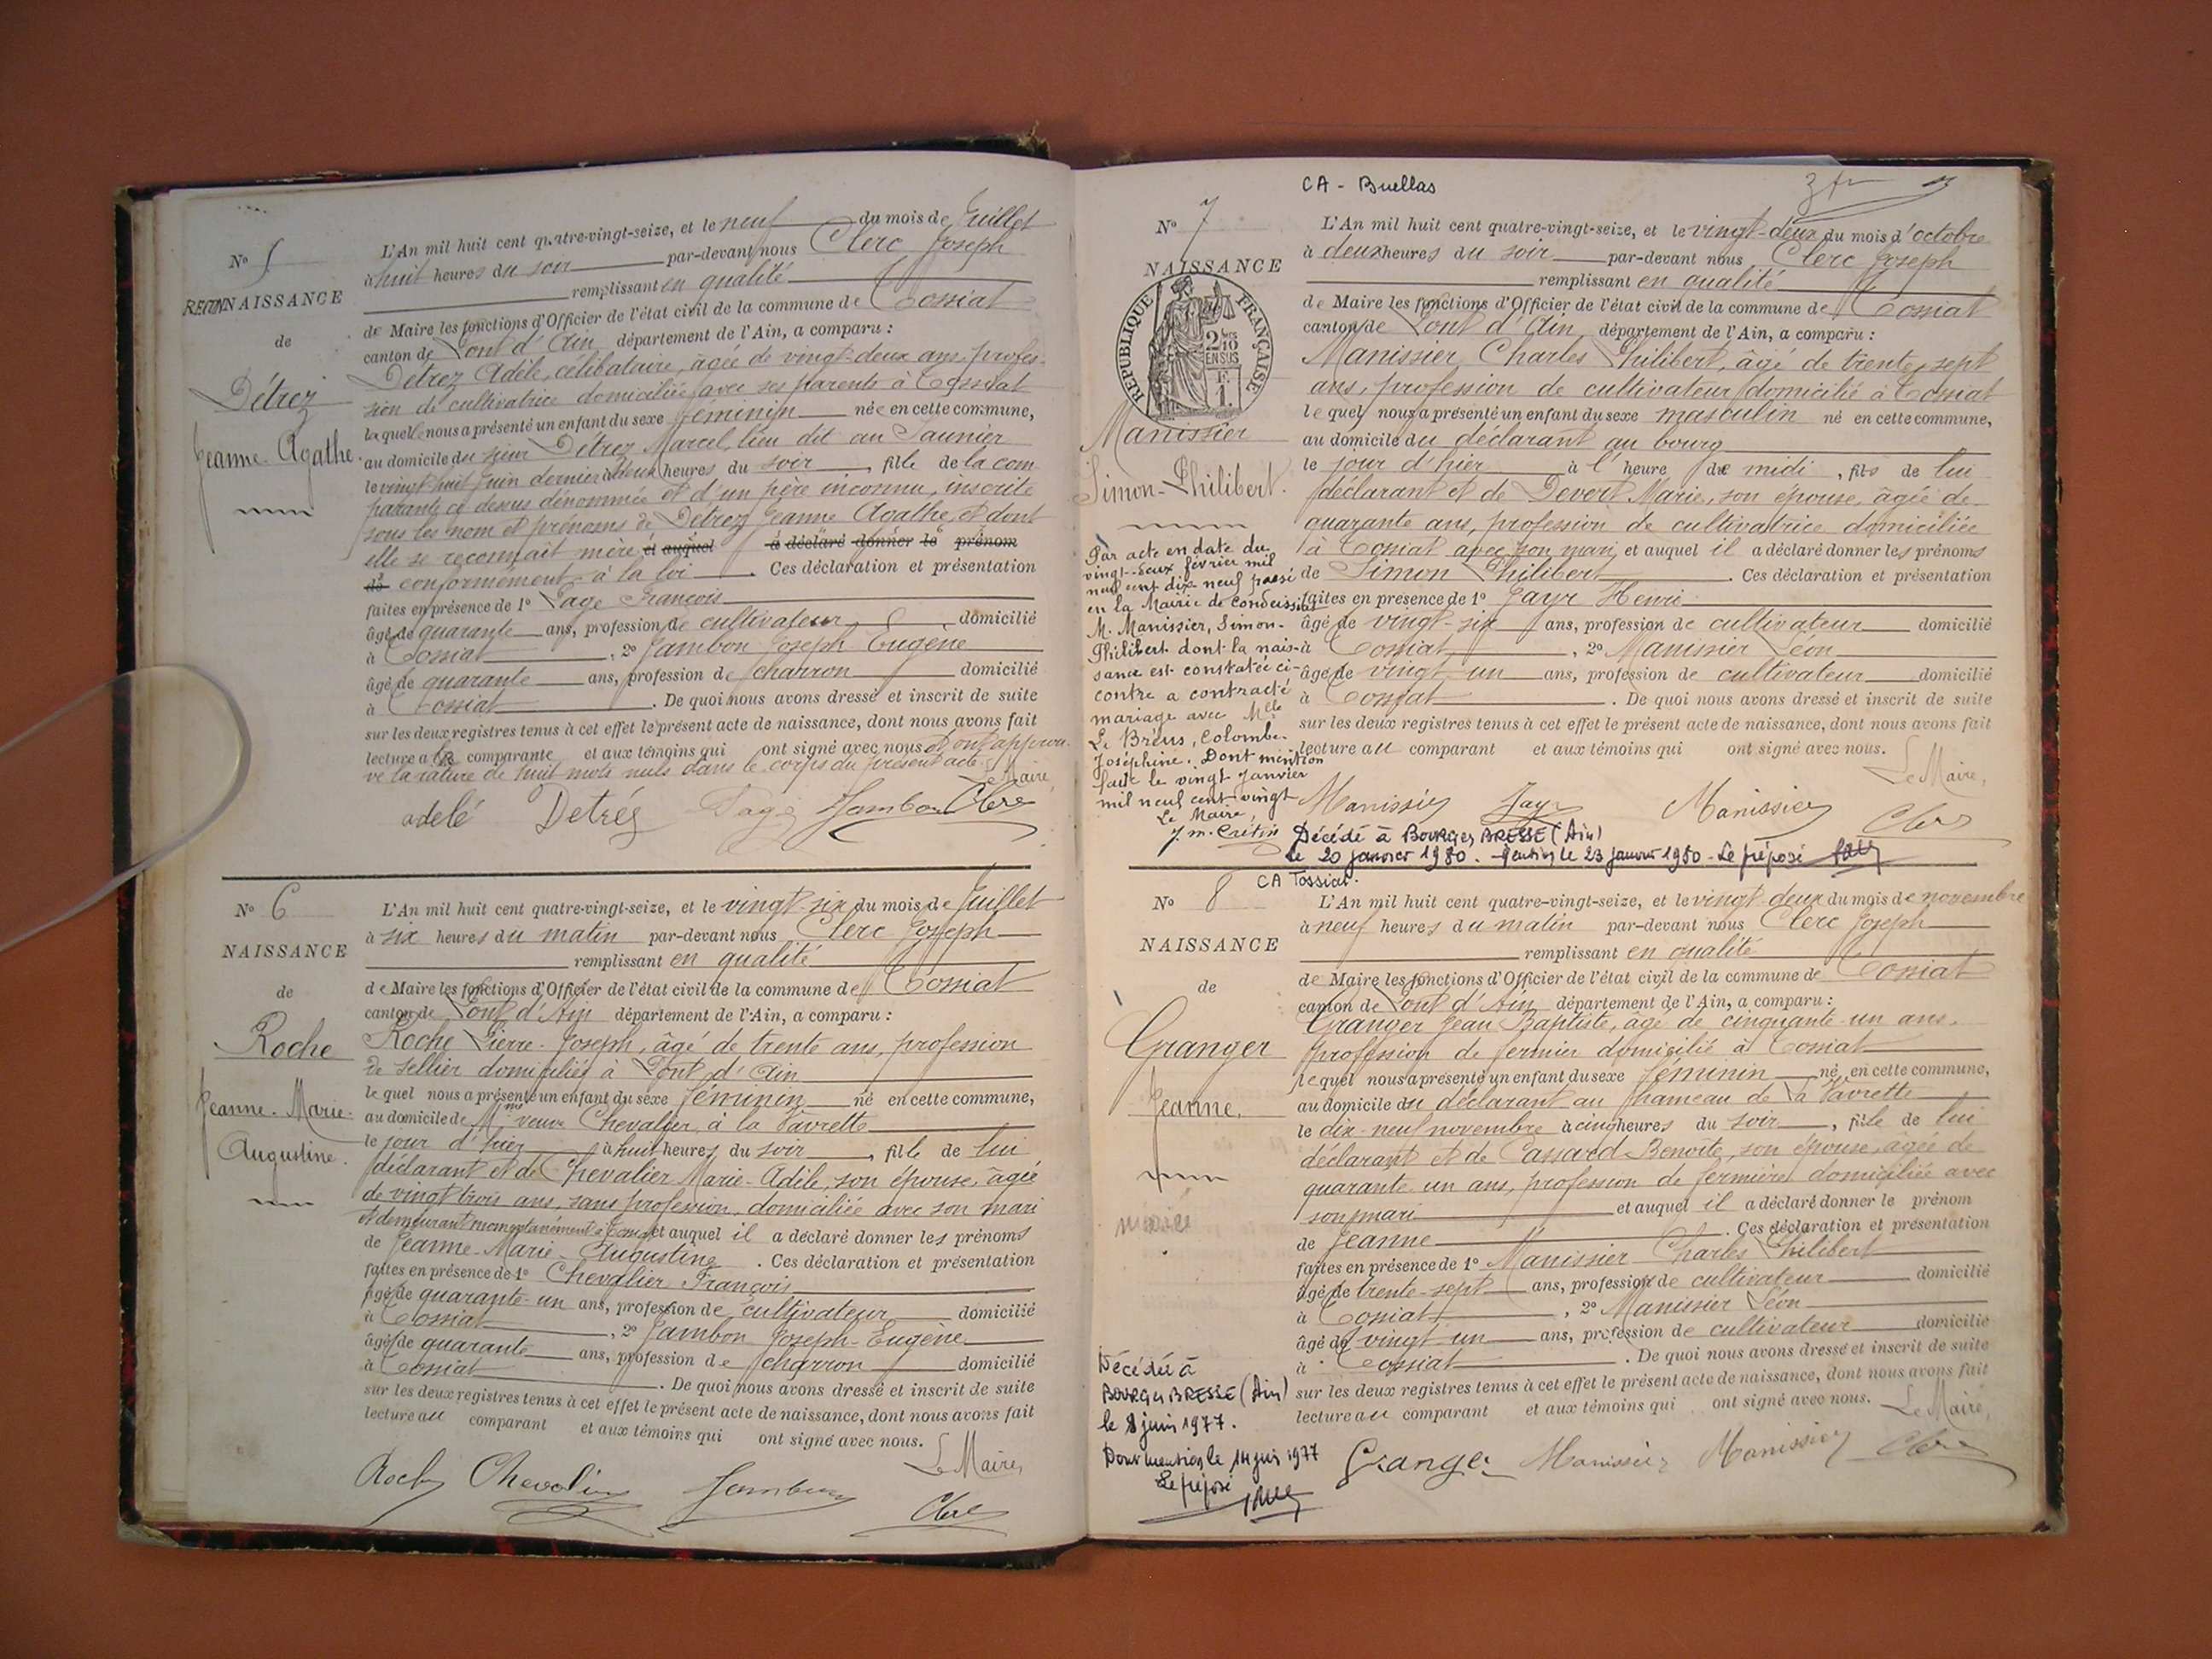 N° 5
RECONNAISSANCE
de
Détrez
Jeanne-Agathe.
L'An mil huit cent quatre-vingt-seize, et le neuf du mois de Juillet
à huit heures du soir par-devant nous Clerc Joseph
remplissant en qualité
de Maire les fonctions d'Officier de l'état civil de la commune de Tossiat
canton de Pont d'Ain département de l'Ain, a comparu :
Détrez Adèle, célibataire, âgée de vingt-deux ans, profes-
sion de cultivatrice domiciliée avec ses parents à Tossiat
laquelle nous a présenté un enfant du sexe féminin née en cette commune,
au domicile du sieur Détrez Marcel, lieu dit au Saunier
le vingt huit Juin dernier à deux heures du soir, fille de la com
parante ci dessus dénommée et d'un père inconnu, inscrite
sous les nom et prénoms de Détrez Jeanne Agathe, et dont
elle se reconnait mère et auquel a déclaré donner le prénom
de conformément à la loi. Ces déclaration et présentation
faites en présence de 1° Page François
âgé de quarante ans, profession de cultivateur domicilié
à Tossiat, 2° Jambon Joseph Eugène
âgé de quarante ans, profession de charron domicilié
à Tossiat. De quoi nous avons dressé et inscrit de suite
sur les deux registres tenus à cet effet le présent acte de naissance, dont nous avons fait
lecture a la comparante et aux témoins qui ont signé avec nous et ont approu-
vé la rature de huit mots nuls dans le corps du présent acte. Le Maire,
adelé Detréz Page Jambon Clerc
N° 6
NAISSANCE
de
Roche
Jeanne-Marie-
Augustine.
L'An mil huit cent quatre-vingt-seize, et le vingt-six du mois de Juillet
à six heures du matin par-devant nous Clerc Joseph
remplissant en qualité
de Maire les fonctions d'Officier de l'état civil de la commune de Tossiat
canton de Pont d'Ain département de l'Ain, a comparu :
Roche Pierre-Joseph, âgé de trente ans, profession
de sellier domicilié à Pont d'Ain
le quel nous a présenté un enfant du sexe féminin né en cette commune,
au domicile de Mme veuve Chevalier, à la Vavrette
le jour d'hier à huit heures du soir, fille de lui
déclarant et de Chevalier Marie-Adèle, son épouse, âgée
de vingt trois ans, sans profession, domiciliée avec son mari
et demeurant momentanément à Tossiat et auquel il a déclaré donner les prénoms
de Jeanne-Marie-Augustine. Ces déclaration et présentation
faites en présence de 1° Chevalier François
âgé de quarante-un ans, profession de cultivateur domicilié
à Tossiat, 2° Jambon Joseph-Eugène
âgé de quarante ans, profession de charron domicilié
à Tossiat. De quoi nous avons dressé et inscrit de suite
sur les deux registres tenus à cet effet le présent acte de naissance, dont nous avons fait
lecture au comparant et aux témoins qui ont signé avec nous.
Le Maire,
Roche Chevalier Jambon Clerc
CA - Buellas
N° 7
NAISSANCE
RÉPUBLIQUE FRANÇAISE
2/10
EN SUS
F.
1.
Manissier
Simon-Philibert.
L'An mil huit cent quatre-vingt-seize, et le vingt-deux du mois d'octobre
à deux heures du soir par-devant nous Clerc Joseph
remplissant en qualité
de Maire les fonctions d'Officier de l'état civil de la commune de Tossiat
canton de Pont d'Ain département de l'Ain, a comparu :
Manissier Charles Philibert, âgé de trente-sept
ans, profession de cultivateur domicilié à Tossiat
le quel nous a présenté un enfant du sexe masculin né en cette commune,
au domicile du déclarant au bourg
le jour d'hier à l'heure de midi, fils de lui
déclarant et de Devert Marie, son épouse, âgée de
quarante ans, profession de cultivatrice domiciliée
à Tossiat avec son mari et auquel il a déclaré donner les prénoms
de Simon Philibert. Ces déclaration et présentation
faites en présence de 1° Jayr Henri
âgé de vingt-six ans, profession de cultivateur domicilié
à Tossiat, 2° Manissier Léon
âgé de vingt un ans, profession de cultivateur domicilié
à Tossiat. De quoi nous avons dressé et inscrit de suite
sur les deux registres tenus à cet effet le présent acte de naissance, dont nous avons fait
lecture au comparant et aux témoins qui ont signé avec nous.
Le Maire,
Manissier Jayr Manissier Clerc
Par acte en date du
vingt-deux février mil
neuf cent dix neuf passé
en la Mairie de Condeissiat
M. Manissier, Simon-
Philibert dont la nais-
sance est constatée ci-
contre a contracté
mariage avec Melle
Le Breus, Colombe-
Joséphine. Dont mention
faite le vingt Janvier
mil neuf cent vingt
Le Maire,
J. M. Cretin
Décédé à BOURG en BRESSE (Ain)
le 20 janvier 1980. Mention le 23 janvier 1980 - Le préposé
CA Tossiat.
N° 8
NAISSANCE
de
Granger
Jeanne.
L'An mil huit cent quatre-vingt-seize, et le vingt-deux du mois de novembre
à neuf heures du matin par-devant nous Clerc Joseph
remplissant en qualité
de Maire les fonctions d'Officier de l'état civil de la commune de Tossiat
canton de Pont d'Ain département de l'Ain, a comparu :
Granger Jean Baptiste, âgé de cinquante-un ans,
profession de fermier domicilié à Tossiat
le quel nous a présenté un enfant du sexe féminin né en cette commune,
au domicile du déclarant au hameau de la Vavrette
le dix-neuf novembre à cinq heures du soir, fille de lui
déclarant et de Cassard Benoîte, son épouse, âgée de
quarante un ans, profession de fermière domiciliée avec
son mari et auquel il a déclaré donner le prénom
de Jeanne. Ces déclaration et présentation
faites en présence de 1° Manissier Charles Philibert
âgé de trente-sept ans, profession de cultivateur domicilié
à Tossiat, 2° Manissier Léon
âgé de vingt un ans, profession de cultivateur domicilié
à Tossiat. De quoi nous avons dressé et inscrit de suite
sur les deux registres tenus à cet effet le présent acte de naissance, dont nous avons fait
lecture au comparant et aux témoins qui ont signé avec nous. Le Maire,
Granger Manissier Manissier Clerc
Décédée à
BOURG en BRESSE (Ain)
le 8 juin 1977.
Dont mention le 14 juin 1977
Le préposé